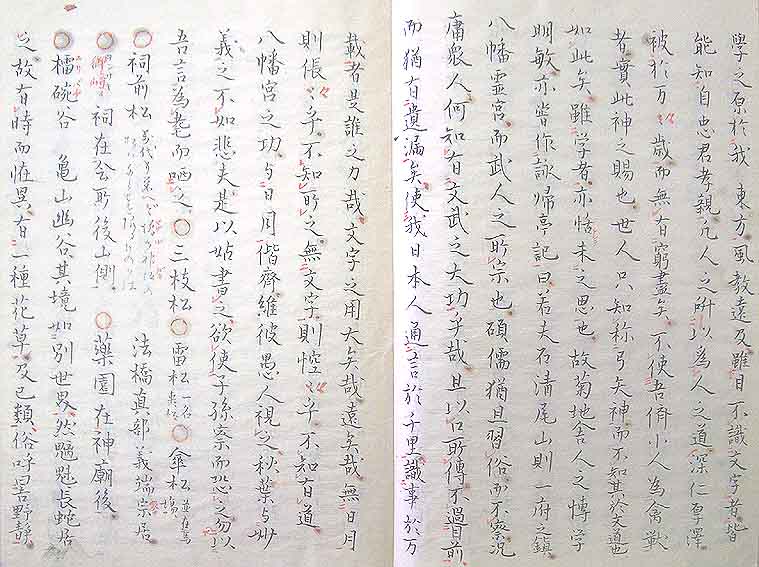 學之原於我 東方風教遠及雖目不識文字者皆
能知自忠君孝親凡人之所以為人之道深仁厚澤
被於万〻歳而無有窮盡矣不使吾儕小人為禽獣
者實此神之賜也世人只知称弓矢神而不知其於文道也
如此矣雖学者亦怙未之思也故菊地舎人之博学
明敏亦嘗作詠帰亭記曰若夫石清尾山則一府之鎮
八幡霊宮而武人之所宗也碩儒猶日習俗而不察況
庸衆人何知有文武之大功乎哉且以口所傳不過目前
而猶有遺漏矣使我日本人通言於千里識事於万
載者是誰之力哉文字之用大矣哉遠矣哉無日月
則倀〻乎不知所之無文字則悾〻乎不知有道
八幡宮之功与日月偕齊維彼愚人視之秋葉与妙
義之不如悲夫是以姑書之欲使子孫察而恐之勿以
吾言為耄而哂之 三枝松 雷松一名 傘松並在馬場
祠前松 法橋直部義端宗居
祠在会所後山側 藥園在神廟後
檑碗谷 亀山幽谷其境如別世界然魑魅長蛇居
之故有時而恠異有一種花草及已類俗呼畧野静